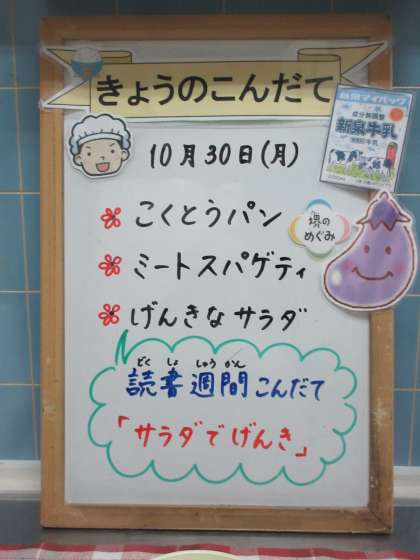 きょうのこんだて
10月30日(月)
新泉マイパック
成分無調整
新泉牛乳
堺の
めぐみ
こくとうパン
ミートスパゲティ
げんきなサラダ
どくしょしゅうかん
読書週間こんだて
「サラダでげんき」